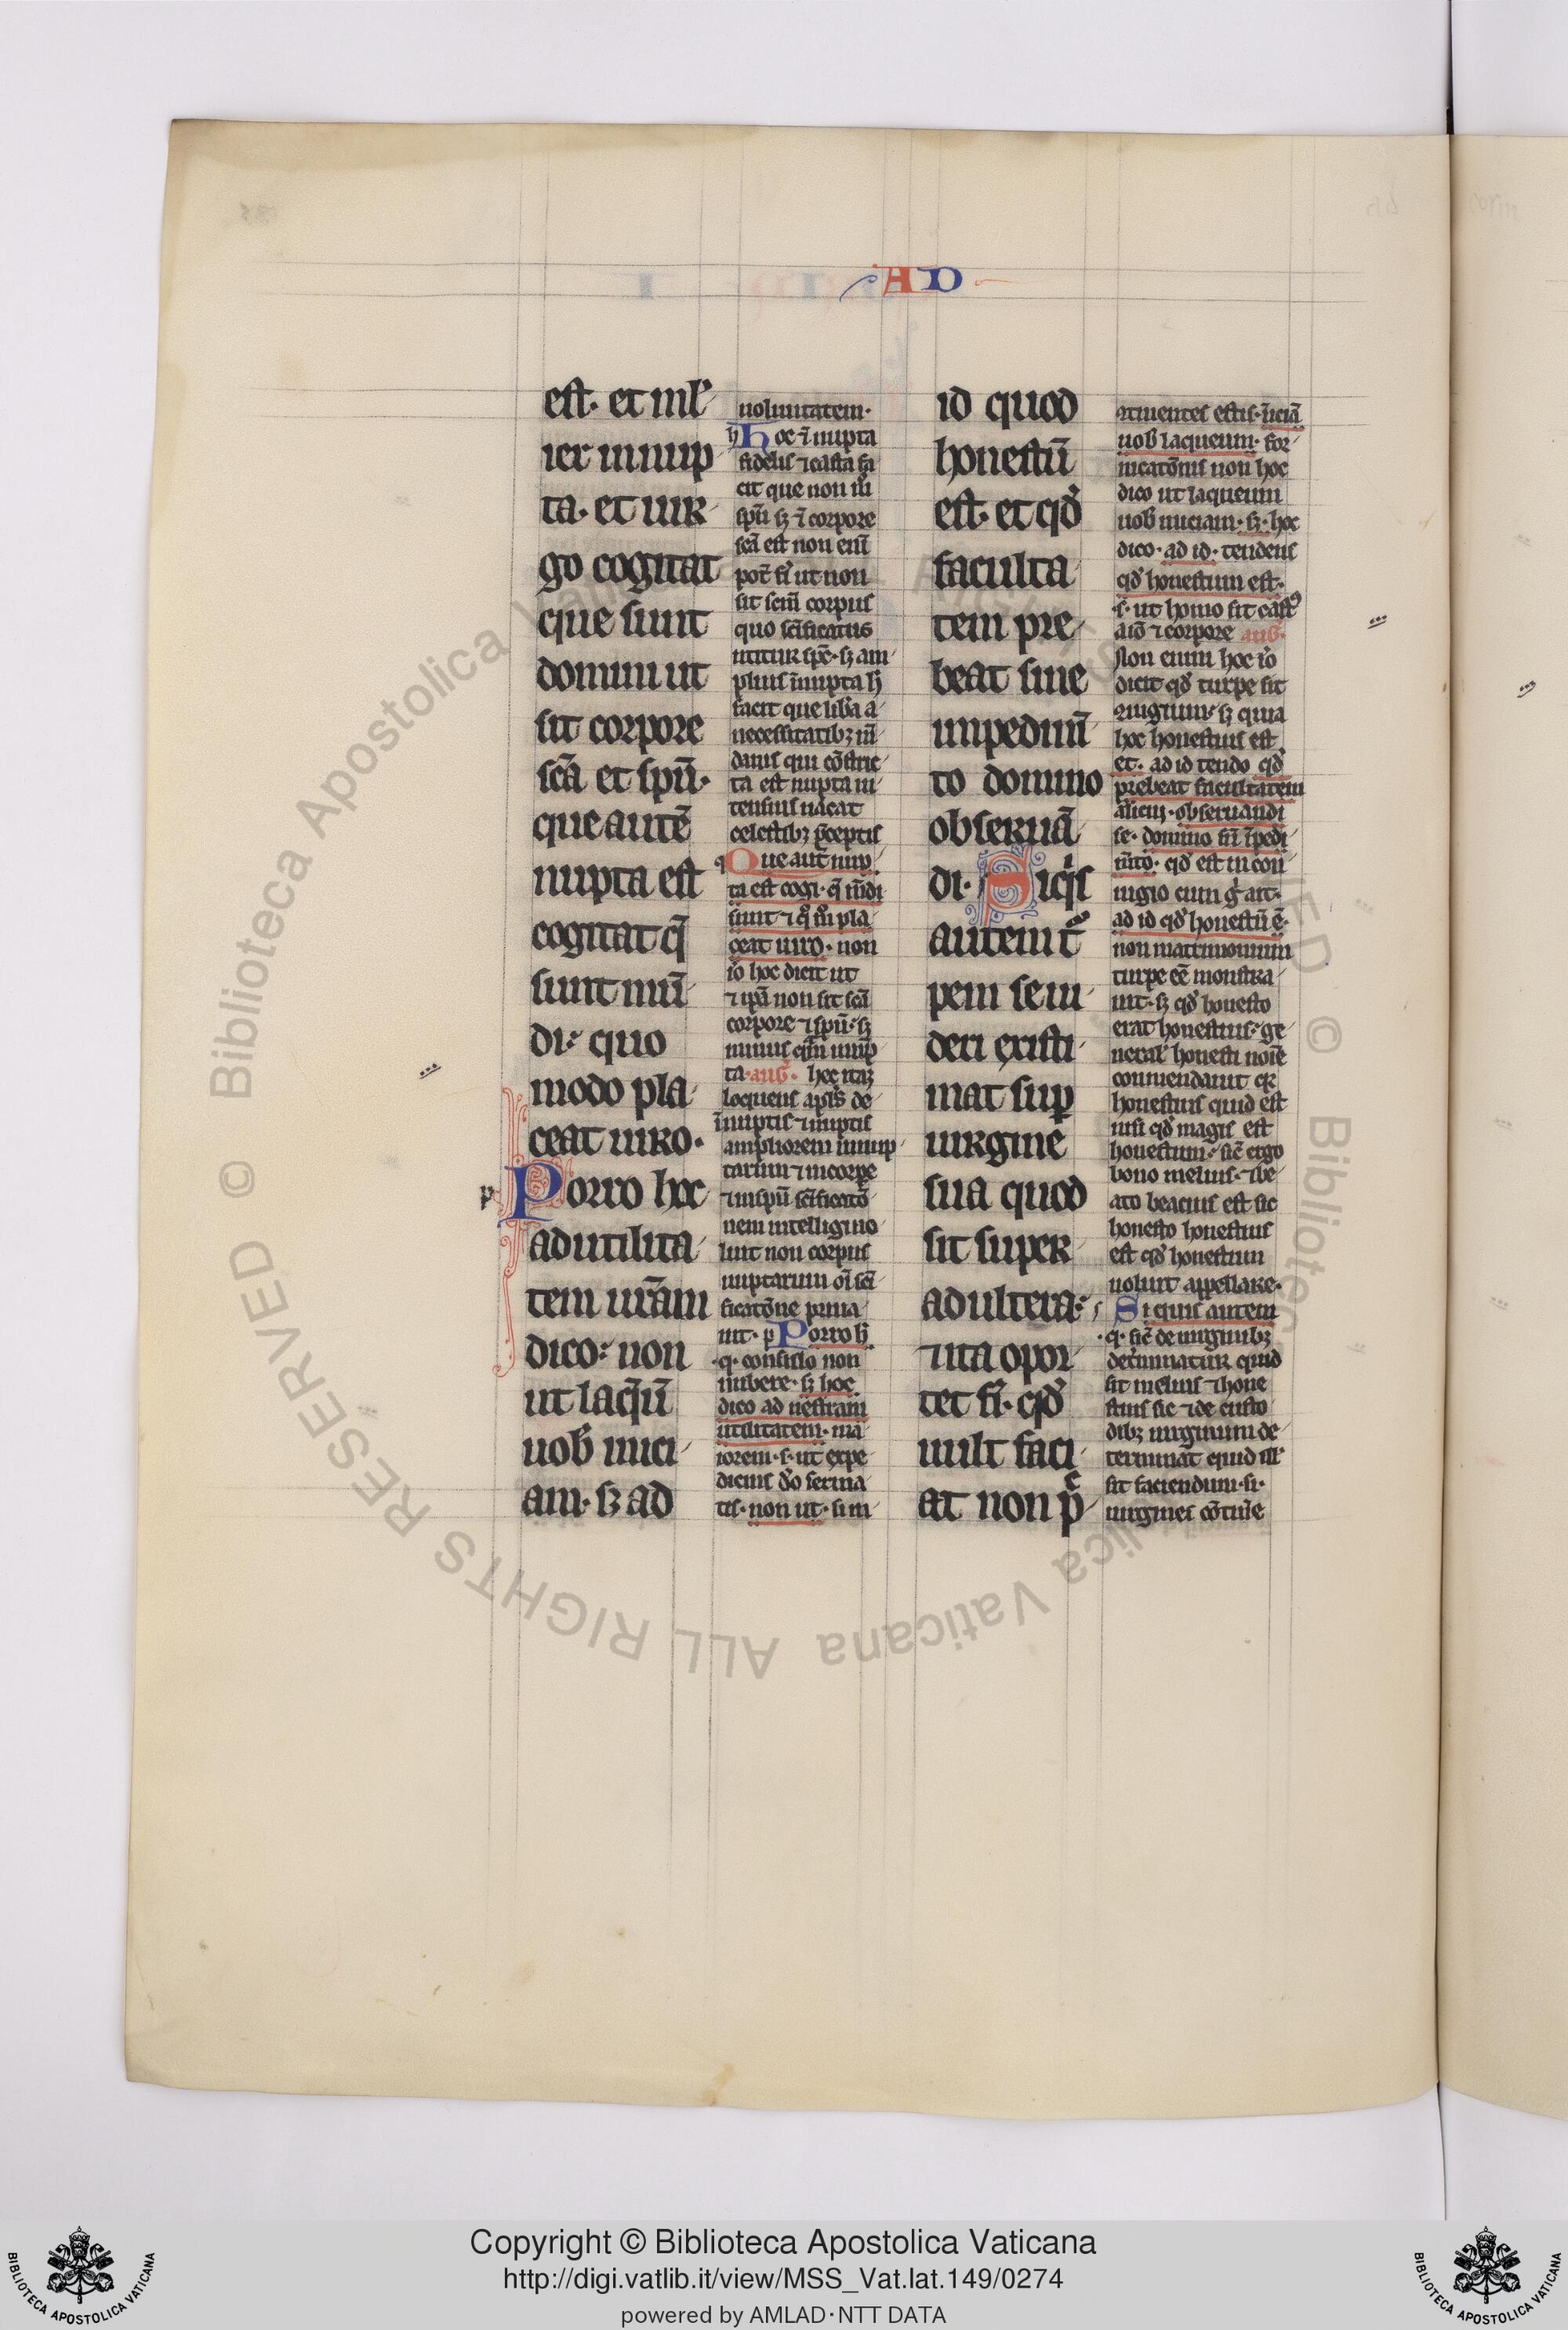 AD
est. et ml̓
ier innup
ta. et uir
go cogitat
que sunt
domini ut
sit corpore
scā et spū.
que autē
nupta est
cogitat q̄
sunt mū
di. quo
modo pla
ceat uiro.
Porro hoc
ad utilita
tem ur̄am
dico. non
ut laq̄ū
uob̄ inici
am. sꝫ ad
uoluntatem.
h Hoc ī nupta
fidelis ⁊ casta fa
cit que non m̄
spū sꝫ ī corpore
scā est non enī
pot̄ fi̓ ut non
sit scm̄ corpus
quo scīficatus
utitur spē. sꝫ am
plius īnupta h̄
facit que lib̓a a
necessitatibꝫ mū
danis qui cōstric
ta est nupta in
tensius uacat
celestibꝫ p̄ceptis
q Que aut̄ nup
ta est cogi. q̄ mūdi
sunt ⁊ qͦ mͦ pla
ceat uiro. non
iō hoc dicit ut
⁊ ipā non sit scā
corpore ⁊ spū. sꝫ
minus qͣm innup
ta. aug̓. hec itaqꝫ
loquens apl̓s de
īnuptis ⁊ nuptis
ampliorem innup
tarum ⁊ in corꝑe
⁊ in spū scīficatō
nem intelligi uo
luit non corpus
nuptarum oī scī
ficatōne priua
uit. p Porro h̄
.q. consulo non
nubere. sꝫ hoc
dico ad uestram
utilitatem. ma
iorem. s. ut expe
dicius dō seruia
tis. non ut. si in
id quod
honestū
est. et qd̓
faculta
tem pre
beat sine
impedim̄
to domino
obseruā
di. Si qͥs
autem tͬ
pem se ui
deri existi
mat suꝑ
uirginē
sua quod
sit super
adultera.
⁊ ita opor
tet fi̓. qd̓
uult faci
at non pͨ
ꝯtinentes estis. īiciā
uob̄ laqueum. for
nicatōnis non hoc
dico ut laqueum
uob̄ iniciam. sꝫ. hoc
dico. ad id. tendens
qd̓ honestum est.
.s. ut homo sit cast᷒
aīo ⁊ corpore aug̓.
Non enim hoc iō
dicit qd̓ turpe sit
ꝯiugium. sꝫ quia
hoc honestius est
et. ad id tendo qd̓
prebeat facultatem
alicui. obseruandi
se. domino sīn īpedi
mīto. qd̓ est in con
iugio cum gͦ ait.
ad id qd̓ honestū ē.
non matrimonium
turpe eē monstra
uit. sꝫ qd̓ honesto
erat honestius. ge
neral̓ honesti noīe
commendauit qꝛ
honestius quid est
nisi qd̓ magis est
honestum. sic̄ ergo
bono melius. ⁊ be
ato beacius est sic
honesto honestius
est qd̓ honestum
uoluit appellare.
s Si quis autem
.q. sic̄ de uirginibꝫ
det̓minatur quid
sit melius ⁊ hone
stius sic ⁊ de custo
dibꝫ uirginum de
terminat quid ill̓
sit faciendum. si.
uirgines cōtinē
Copyright © Biblioteca Apostolica Vaticana
http://digi.vatlib.it/view/MSS_Vat.lat.149/0274
powered by AMLAD·NTT DATA
© Biblioteca Apostolica Vaticana ALL RIGHTS RESERVED
BIBLIOTECA APOSTOLICA VATICANA
BIBLIOTECA APOSTOLICA VATICANA